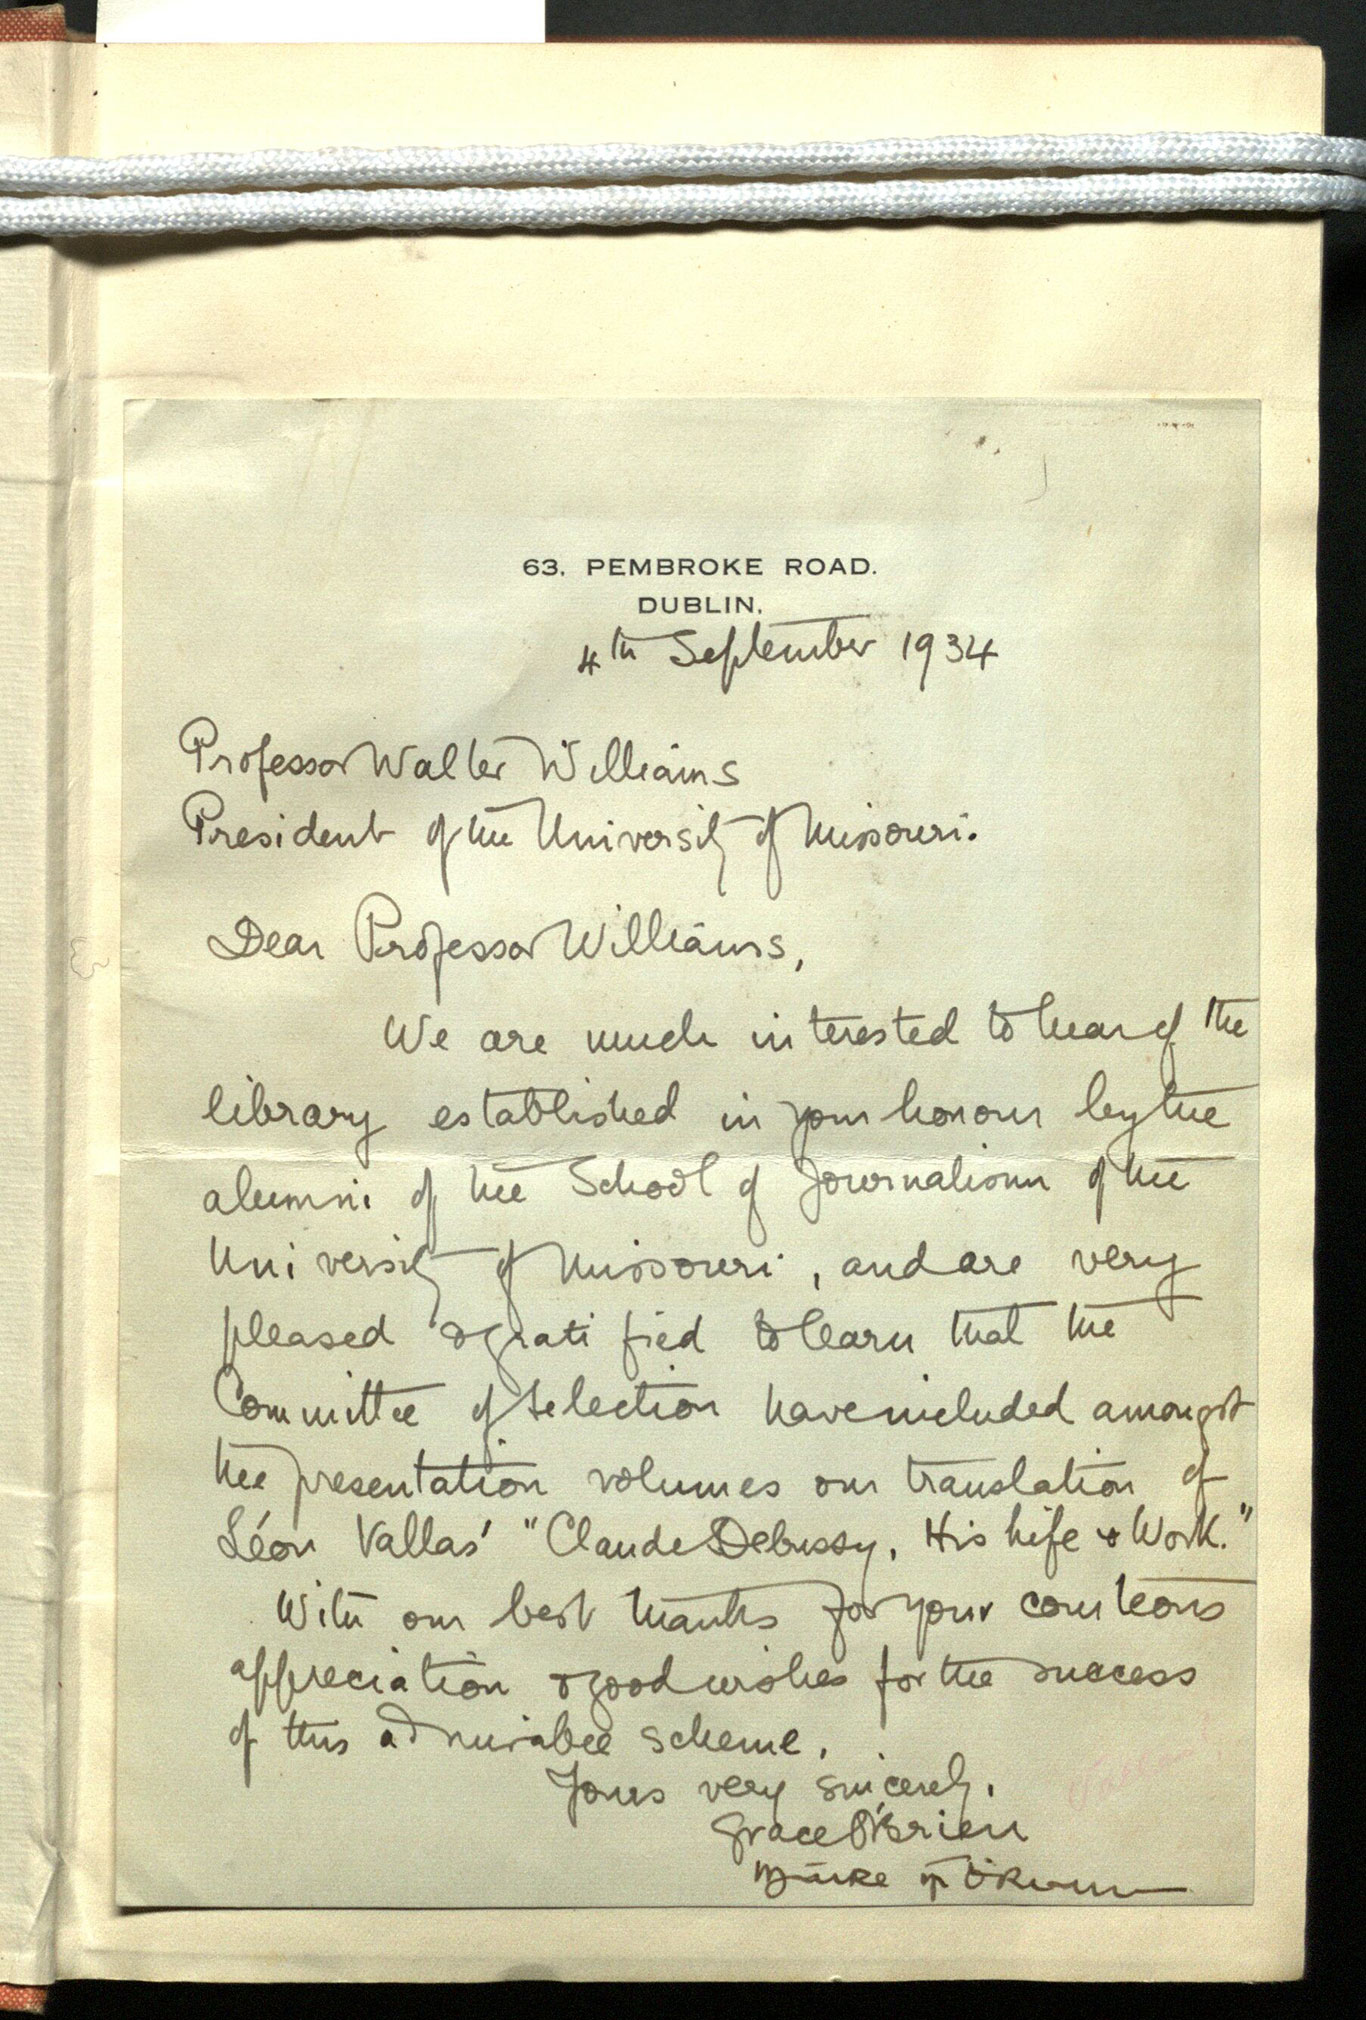 63, PEMBROKE ROAD.
DUBLIN,
4th September 1934
Professor Walter Williams
President of the University of Missouri.
Dear Professor Williams,
We are much interested to hear of the
library established in your honour by the
alumni of the School of Journalism of the
University of Missouri, and are very
pleased & gratified to learn that the
Committee of Selection have included amongst
the presentation volumes our translation of
Léon Vallas' "Claude Debussy, His Life & Work."
With our best thanks for your courteous
appreciation & good wishes for the success
of this admirable scheme.
Yours very sincerely,
Grace O'Brien